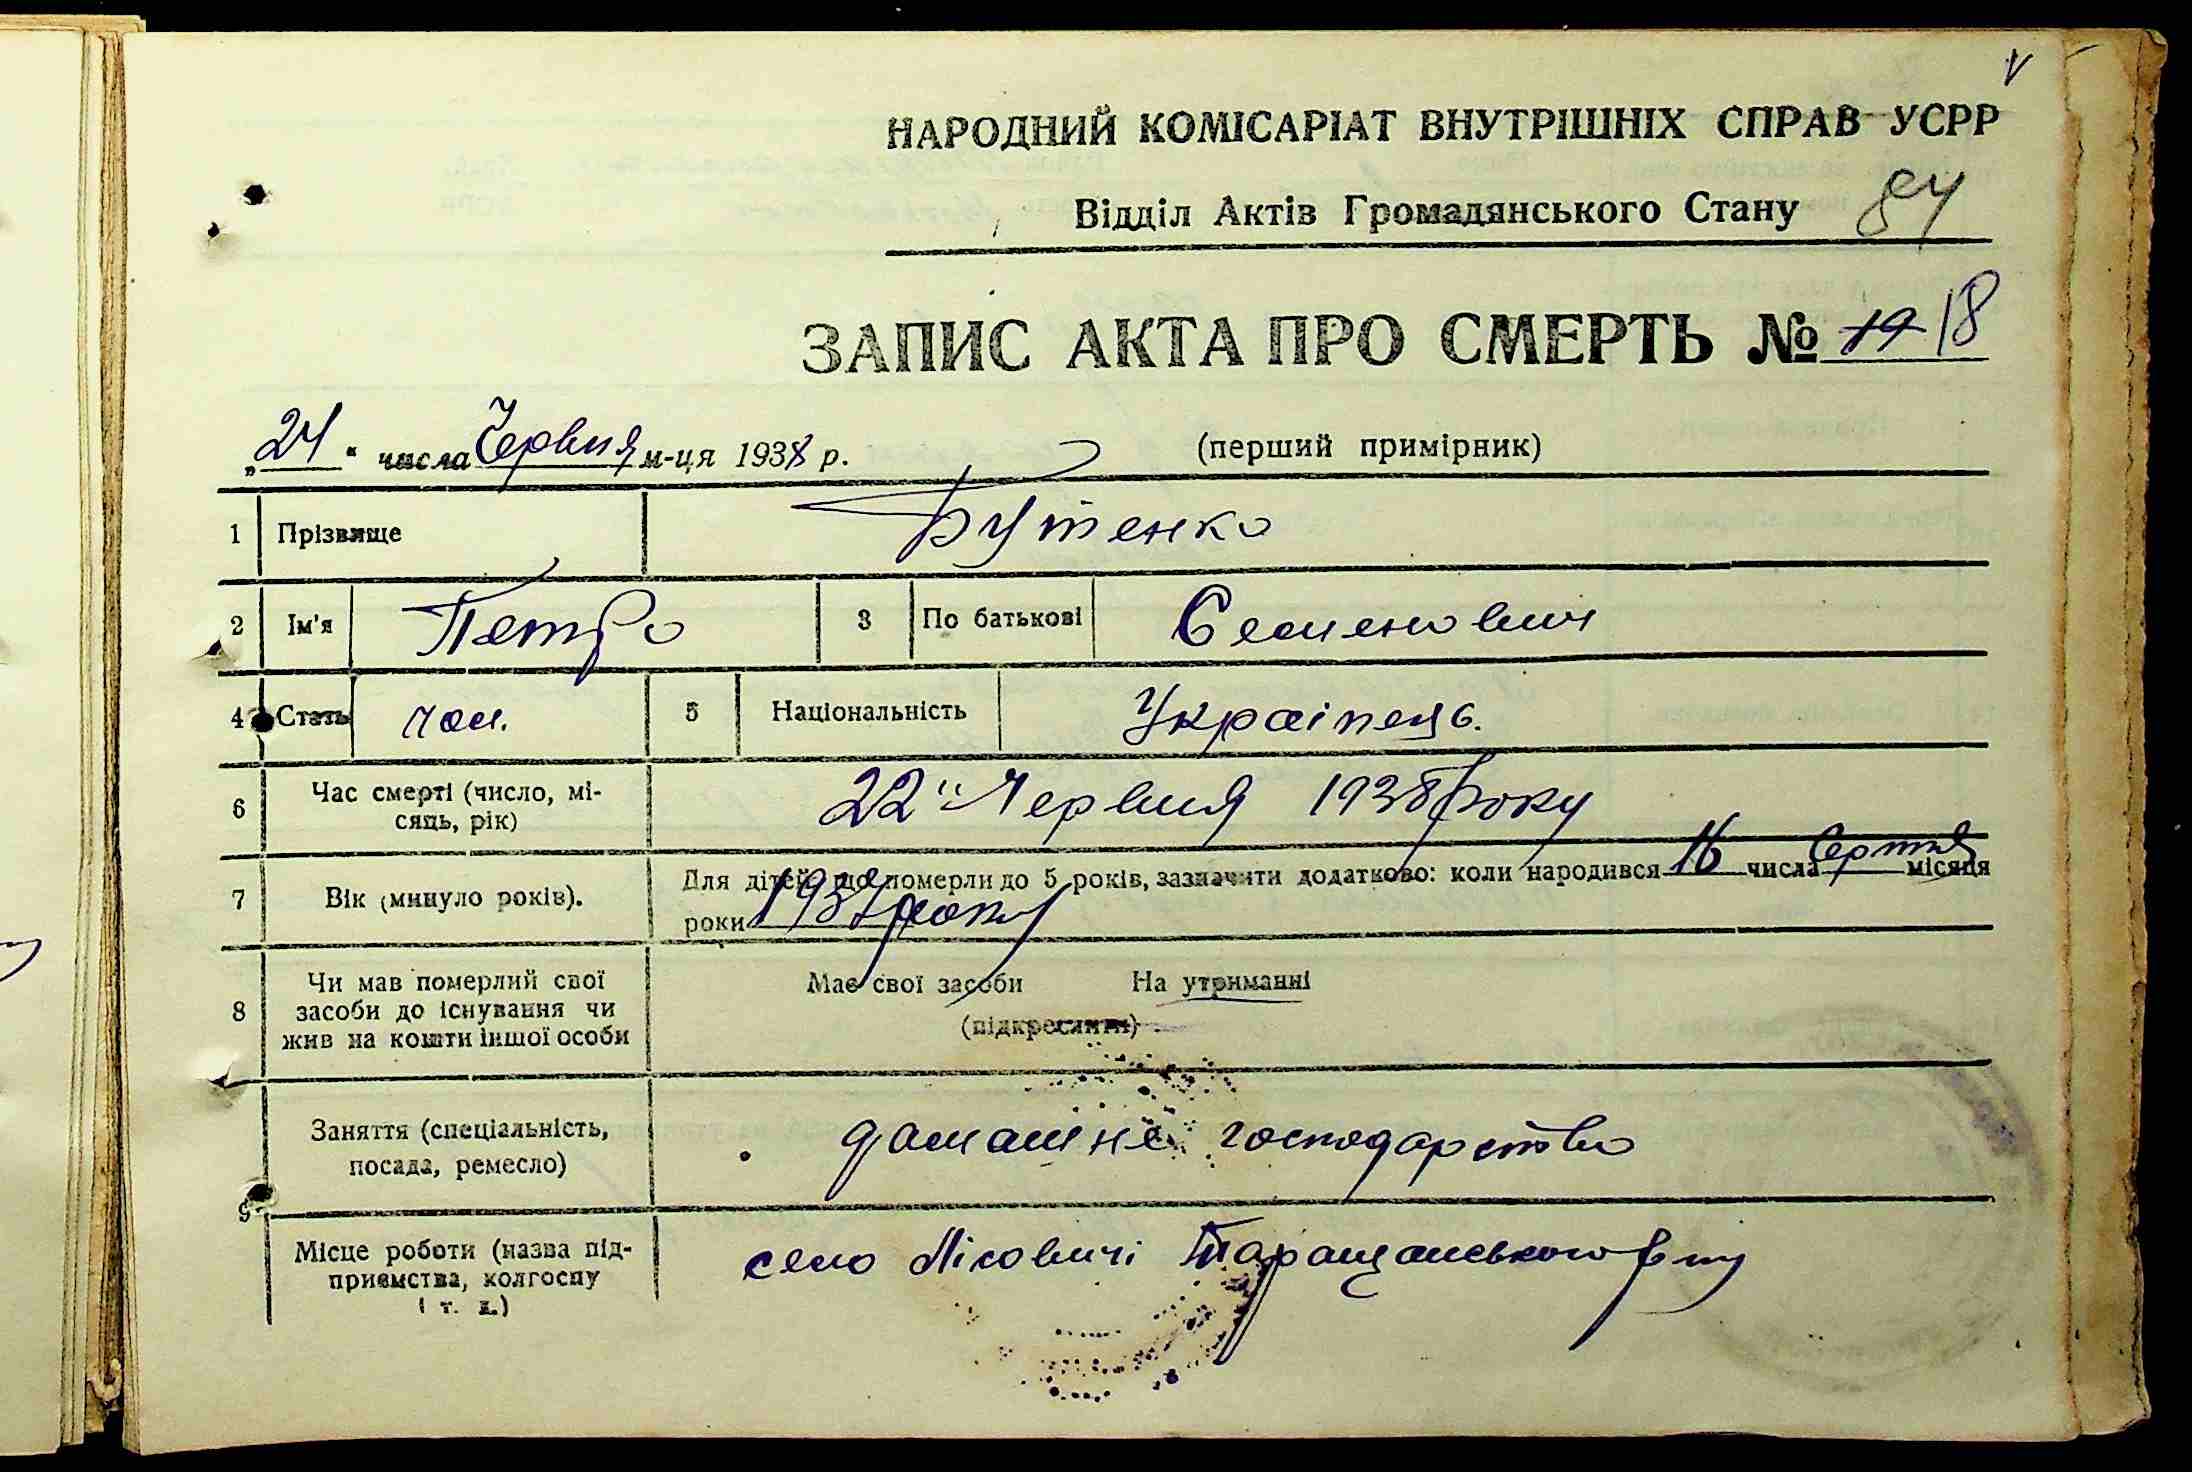 НАРОДНИЙ КОМІСАРІАТ ВНУТРІШНІХ СПРАВ УСРР
Відділ Актів Громадянського Стану 84
ЗАПИС АКТА ПРО СМЕРТЬ № 19 18
„24“ числа Червня м-ця 1938 р. (перший примірник)
1 Прізвище Бутенко
2 Ім'я Петро 3 По батькові Семенович
4 Стать чол. 5 Національність Українець.
6 Час смерті (число, мі-
сяць, рік) 22" Червня 1938 року
7 Вік (минуло років). Для дітей, що померли до 5 років, зазначити додатково: коли народився 16 числа Серпня місяця
роки 1937 року
8 Чи мав померлий свої
засоби до існування чи
жив на кошти іншої особи
Має свої засоби На утриманні
(підкреслити)
9 Заняття (спеціальність,
посада, ремесло) домашнє господарство
Місце роботи (назва під-
приємства, колгоспу
і т. д.) село Лісовичі Таращанського р-ну